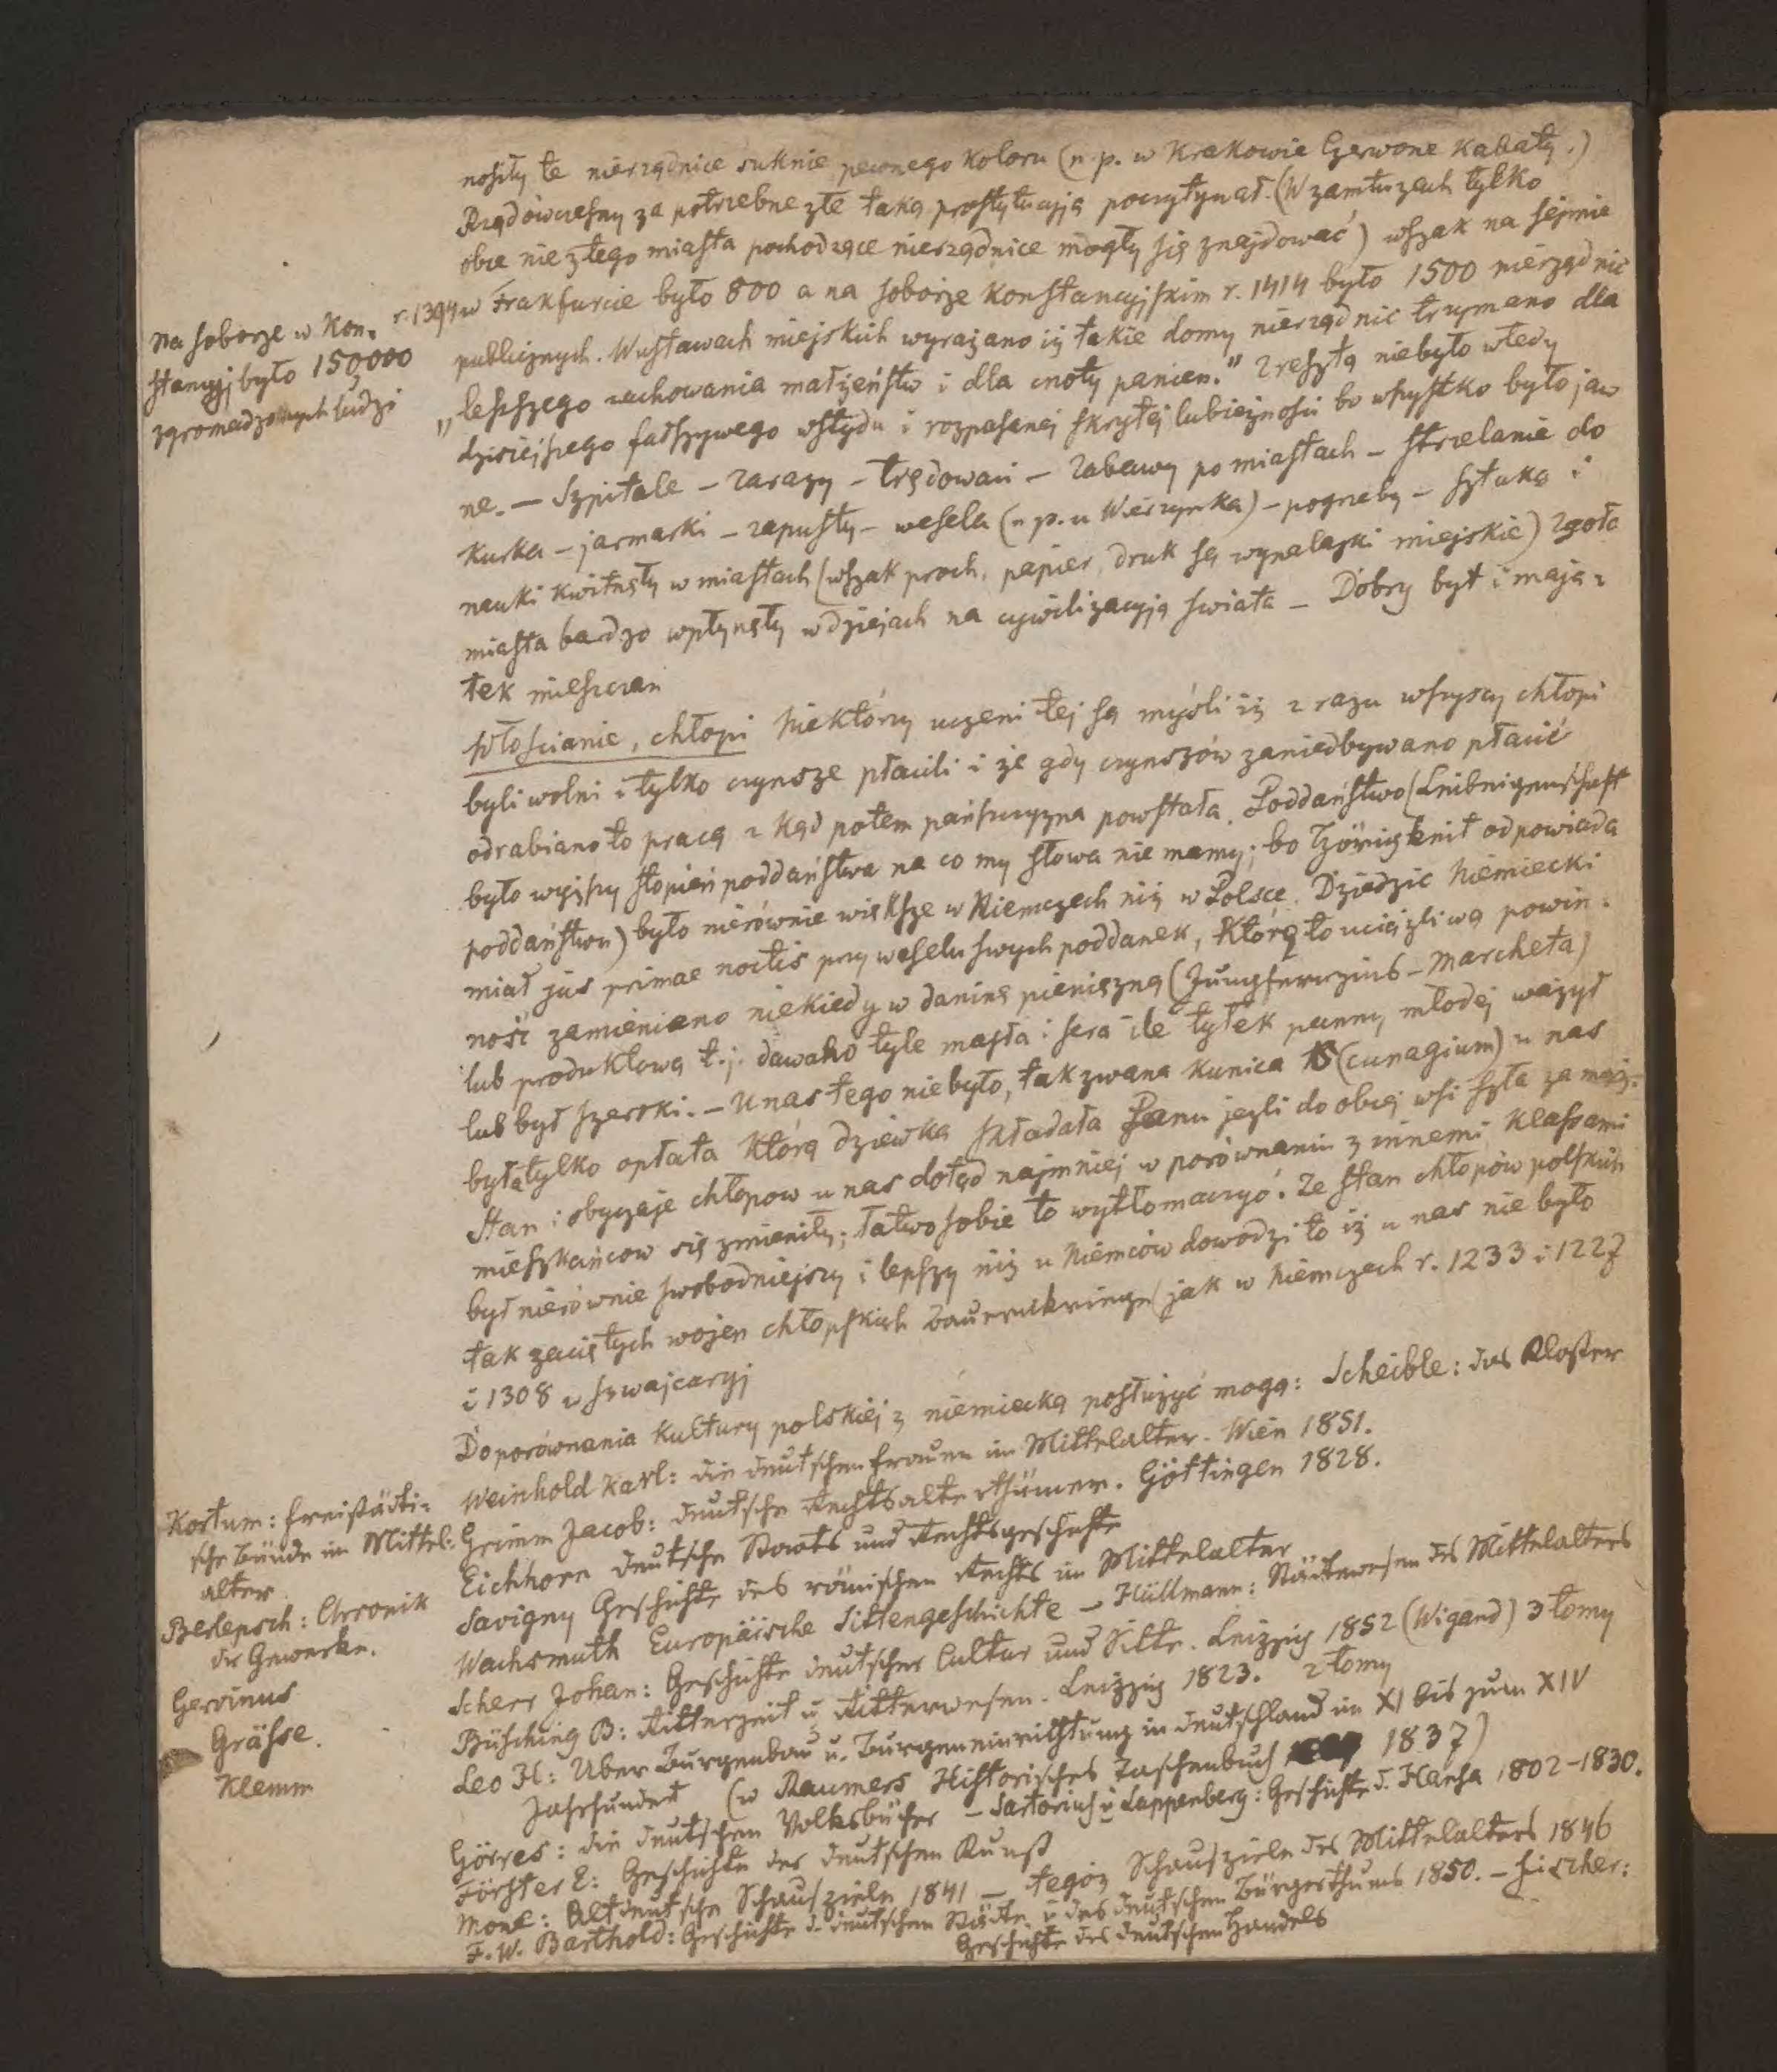 nosiły te nierządnice suknie pewnego koloru (n.p. w Krakowie Czerwone Kabaty.)
Rząd ówczesny za potrzebne złe taką prostytucyją poczytywał. (W zamtuzach tylko
obce nie z tego miasta pochodzące nierządnice mogły się znajdować) wszak na sejmie
r. 1394 w Frakfurcie było 800 a na soborze Konstancyjskim r. 1414 było 1500 nierządnic
publicznych. W ustawach miejskich wyrażano iż takie domy nierządnic trzymano dla
„lepszego zachowania małżeństw i dla cnoty panien." Zresztą niebyło wtedy
dzisiejszego fałszywego wstydu i rozpasanej skrytej lubieżności bo wszystko było jaw
ne. — Szpitale — Zarazy — Trędowaci — Zabawy po miastach — strzelanie do
Kurka — jarmarki — zapusty — wesela (n p. u Wierzynka) — pogrzeby — sztuka i
nauki kwitnęły w miastach (wszak proch, papier, druk są wynalazki miejskie) zgoła
miasta bardzo wpłynęły w dziejach na cywilizacyją świata — Dobry byt i mają-
tek mieszczan
Na soborze w Kon-
stancyj było 150,000
zgromadzonych ludzi
Włościanie, chłopi Niektórzy uczeni tej są myśli iż z razu wszyscy chłopi
byli wolni i tylko czynsze płacili i że gdy czynszów zaniedbywano płacić
odrabiano to pracą z kąd potem pańszczyzna powstała. Poddaństwo (Leibeigenschaft
było wyższy stopień poddaństwa na co my słowa nie mamy; bo Hörigkeit odpowiada
poddaństwu) było nierównie większe w Niemczech niż w Polsce. Dziedzic Niemiecki
miał jus primae noctis przy weselu swych poddanek, którą to uciążliwą powin-
ność zamieniano niekiedy w daninę pieniężną (Jungfernzins — Marcheta)
lub produktową t.j. dawano tyle masła i sera ile tyłek panny młodej ważył
lub był szeroki. — U nas tego niebyło, tak zwana Kunica (cunagium) u nas
była tylko opłata którą dziewka składała Panu jeżli do obcej wsi szła za mąż.
Stan i obyczaje chłopow u nas dotąd najmniej w porównaniu z innemi klassami
mieszkańcow się zmieniły; łatwo sobie to wytłomaczyć. Że stan chłopów polskich
był nierównie swobodniejszy i lepszy niż u Niemców dowodzi to iż u nas nie było
tak zaciętych wojen chłopskich Bauernkriege jak w Niemczech r. 1233 i 1227
i 1308 w Szwajcaryj
Do porównania kultury polskiej z niemiecką posłużyć mogą: Scheible: das Kloster
Weinhold Karl: die deutschen Frauen im Mittelalter. Wien 1851.
Grimm Jacob: deutsche Rechtsalterthümer. Göttingen 1828.
Eichhorn deutsche Staats und Rechtsgeschichte
Savigny Geschichte des römischen Rechts im Mittelalter
Wachsmuth Europäische Sittengeschichte — Hüllmann: Städtewesen des Mittelalters
Scherr Johan: Geschichte deutscher Cultur und Sitte. Leipzig 1852 (Wigand) 3 tomy
Büsching B: Ritterzeit u Ritterwesen. Leipzig 1823. 2 tomy
Leo H: Uber Burgenbau u. Burgeneinrichtung in Deutschland im XI bis zum XIV
Jahrhundert (w Raumers Historisches Taschenbuch 1837)
Görres: die deutschen Volksbücher — Sartorius u Lappenberg: Geschichte d. Hansa 1802-1830.
Förster E: Geschichte der deutschen Kunst
Mone: Altdeutsche Schauspiele 1841 — tegoż Schauspiele des Mittelalters 1846
F. W. Barthold: Geschichte d. deutschen Städte u des deutschen Bürgerthums 1850. — Fischer:
Geschichte des deutschen Handels
Kortum: freistädti-
sche Bünde im Mittel-
alter
Berlepsch: Chronik
der Gewerke.
Gervinus
Grässe.
Klemm